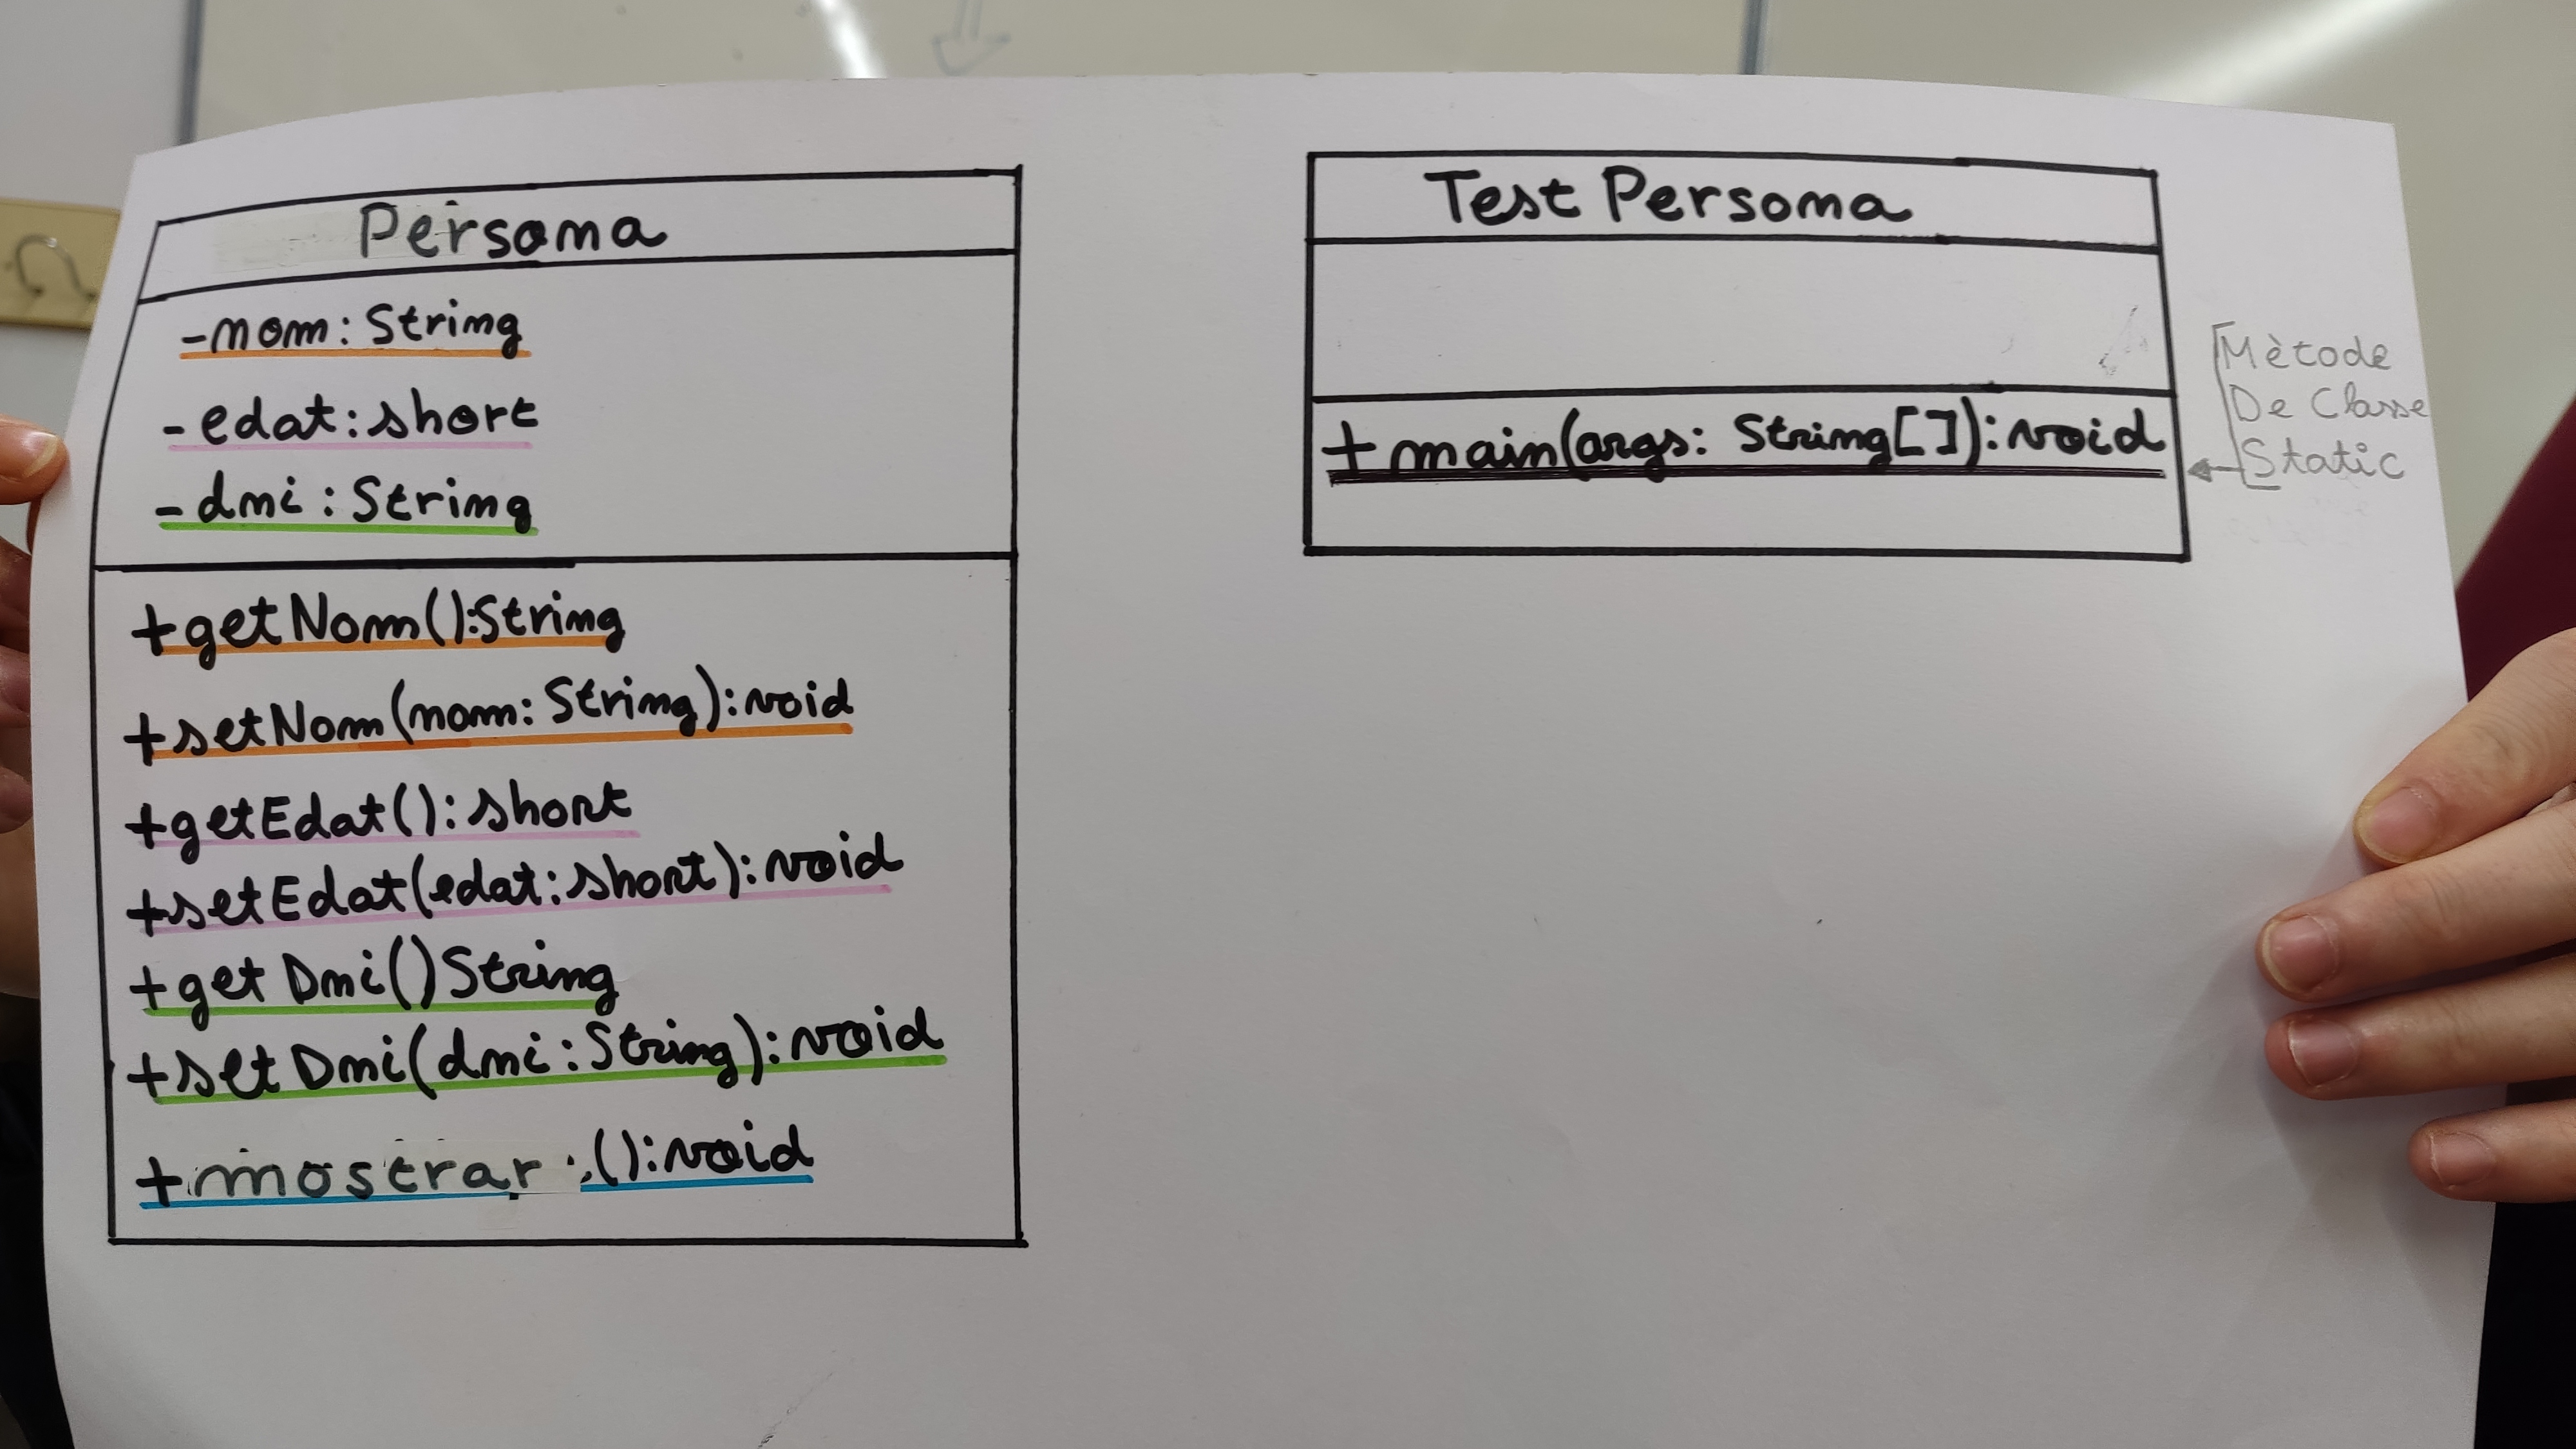 Persona
-nom: String
-edat: short
-dni: String
+getNom():String
+setNom(nom: String): void
+getEdat(): short
+setEdat(edat: short): void
+getDni()String
+setDni(dni: String): void
+mostrar(): void
Test Persona
+main(args: String[]): void
Mètode
De Classe
Static